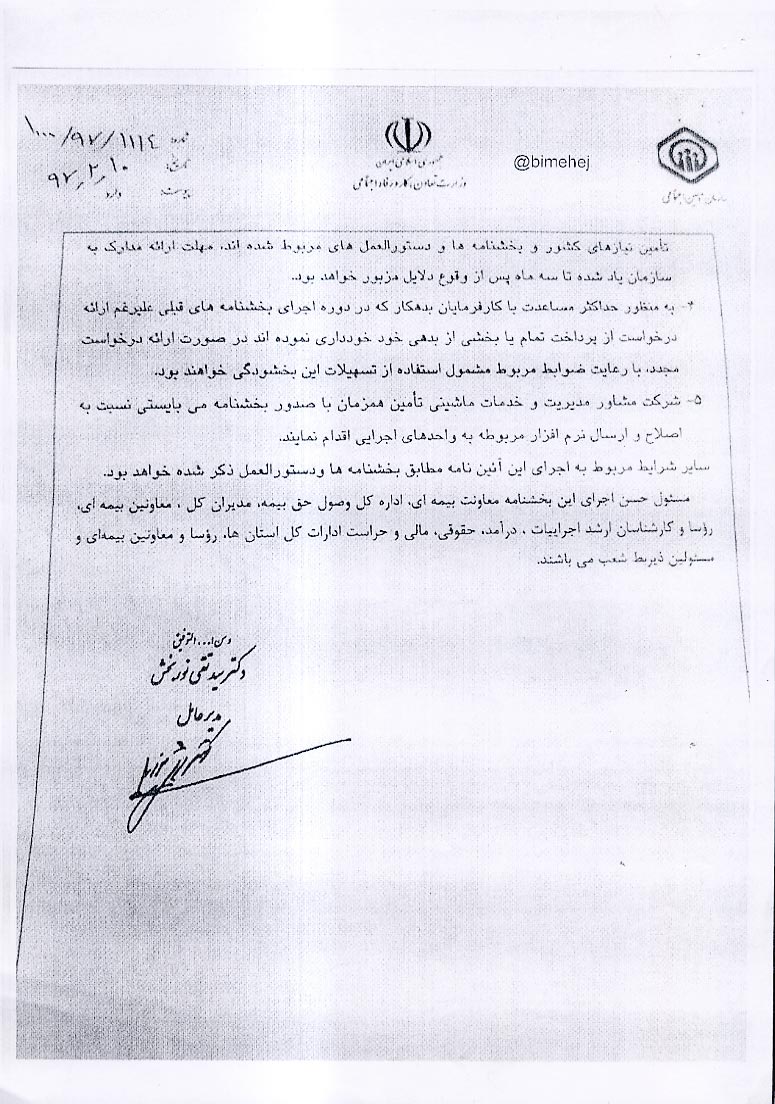 شماره: ۱۰۰۰/۹۷/۱۱۱۴
تاریخ: ۹۷٫۲٫۱۰
پیوست: دارد
جمهوری اسلامی ایران
وزارت تعاون، کار و رفاه اجتماعی
@bimehej
سازمان تأمین اجتماعی
تأمین نیازهای کشور و بخشنامه ها و دستورالعمل های مربوط شده اند، مهلت ارائه مدارک به
سازمان یاد شده تا سه ماه پس از وقوع دلایل مزبور خواهد بود.
۴- به منظور حداکثر مساعدت با کارفرمایان بدهکار که در دوره اجرای بخشنامه های قبلی علیرغم ارائه
درخواست از پرداخت تمام یا بخشی از بدهی خود خودداری نموده اند در صورت ارائه درخواست
مجدد، با رعایت ضوابط مربوط مشمول استفاده از تسهیلات این بخشودگی خواهند بود.
۵- شرکت مشاور مدیریت و خدمات ماشینی تأمین همزمان با صدور بخشنامه می بایستی نسبت به
اصلاح و ارسال نرم افزار مربوطه به واحدهای اجرایی اقدام نمایند.
سایر شرایط مربوط به اجرای این آئین نامه مطابق بخشنامه ها ودستورالعمل ذکر شده خواهد بود.
مسئول حسن اجرای این بخشنامه معاونت بیمه ای، اداره کل وصول حق بیمه، مدیران کل ، معاونین بیمه ای،
رؤسا و کارشناسان ارشد اجراییات ، درآمد، حقوقی، مالی و حراست ادارات کل استان ها، رؤسا و معاونین بیمه‌ای و
مسئولین ذیربط شعب می باشند.
ومن ا... التوفیق
دکتر سید تقی نوربخش
مدیرعامل